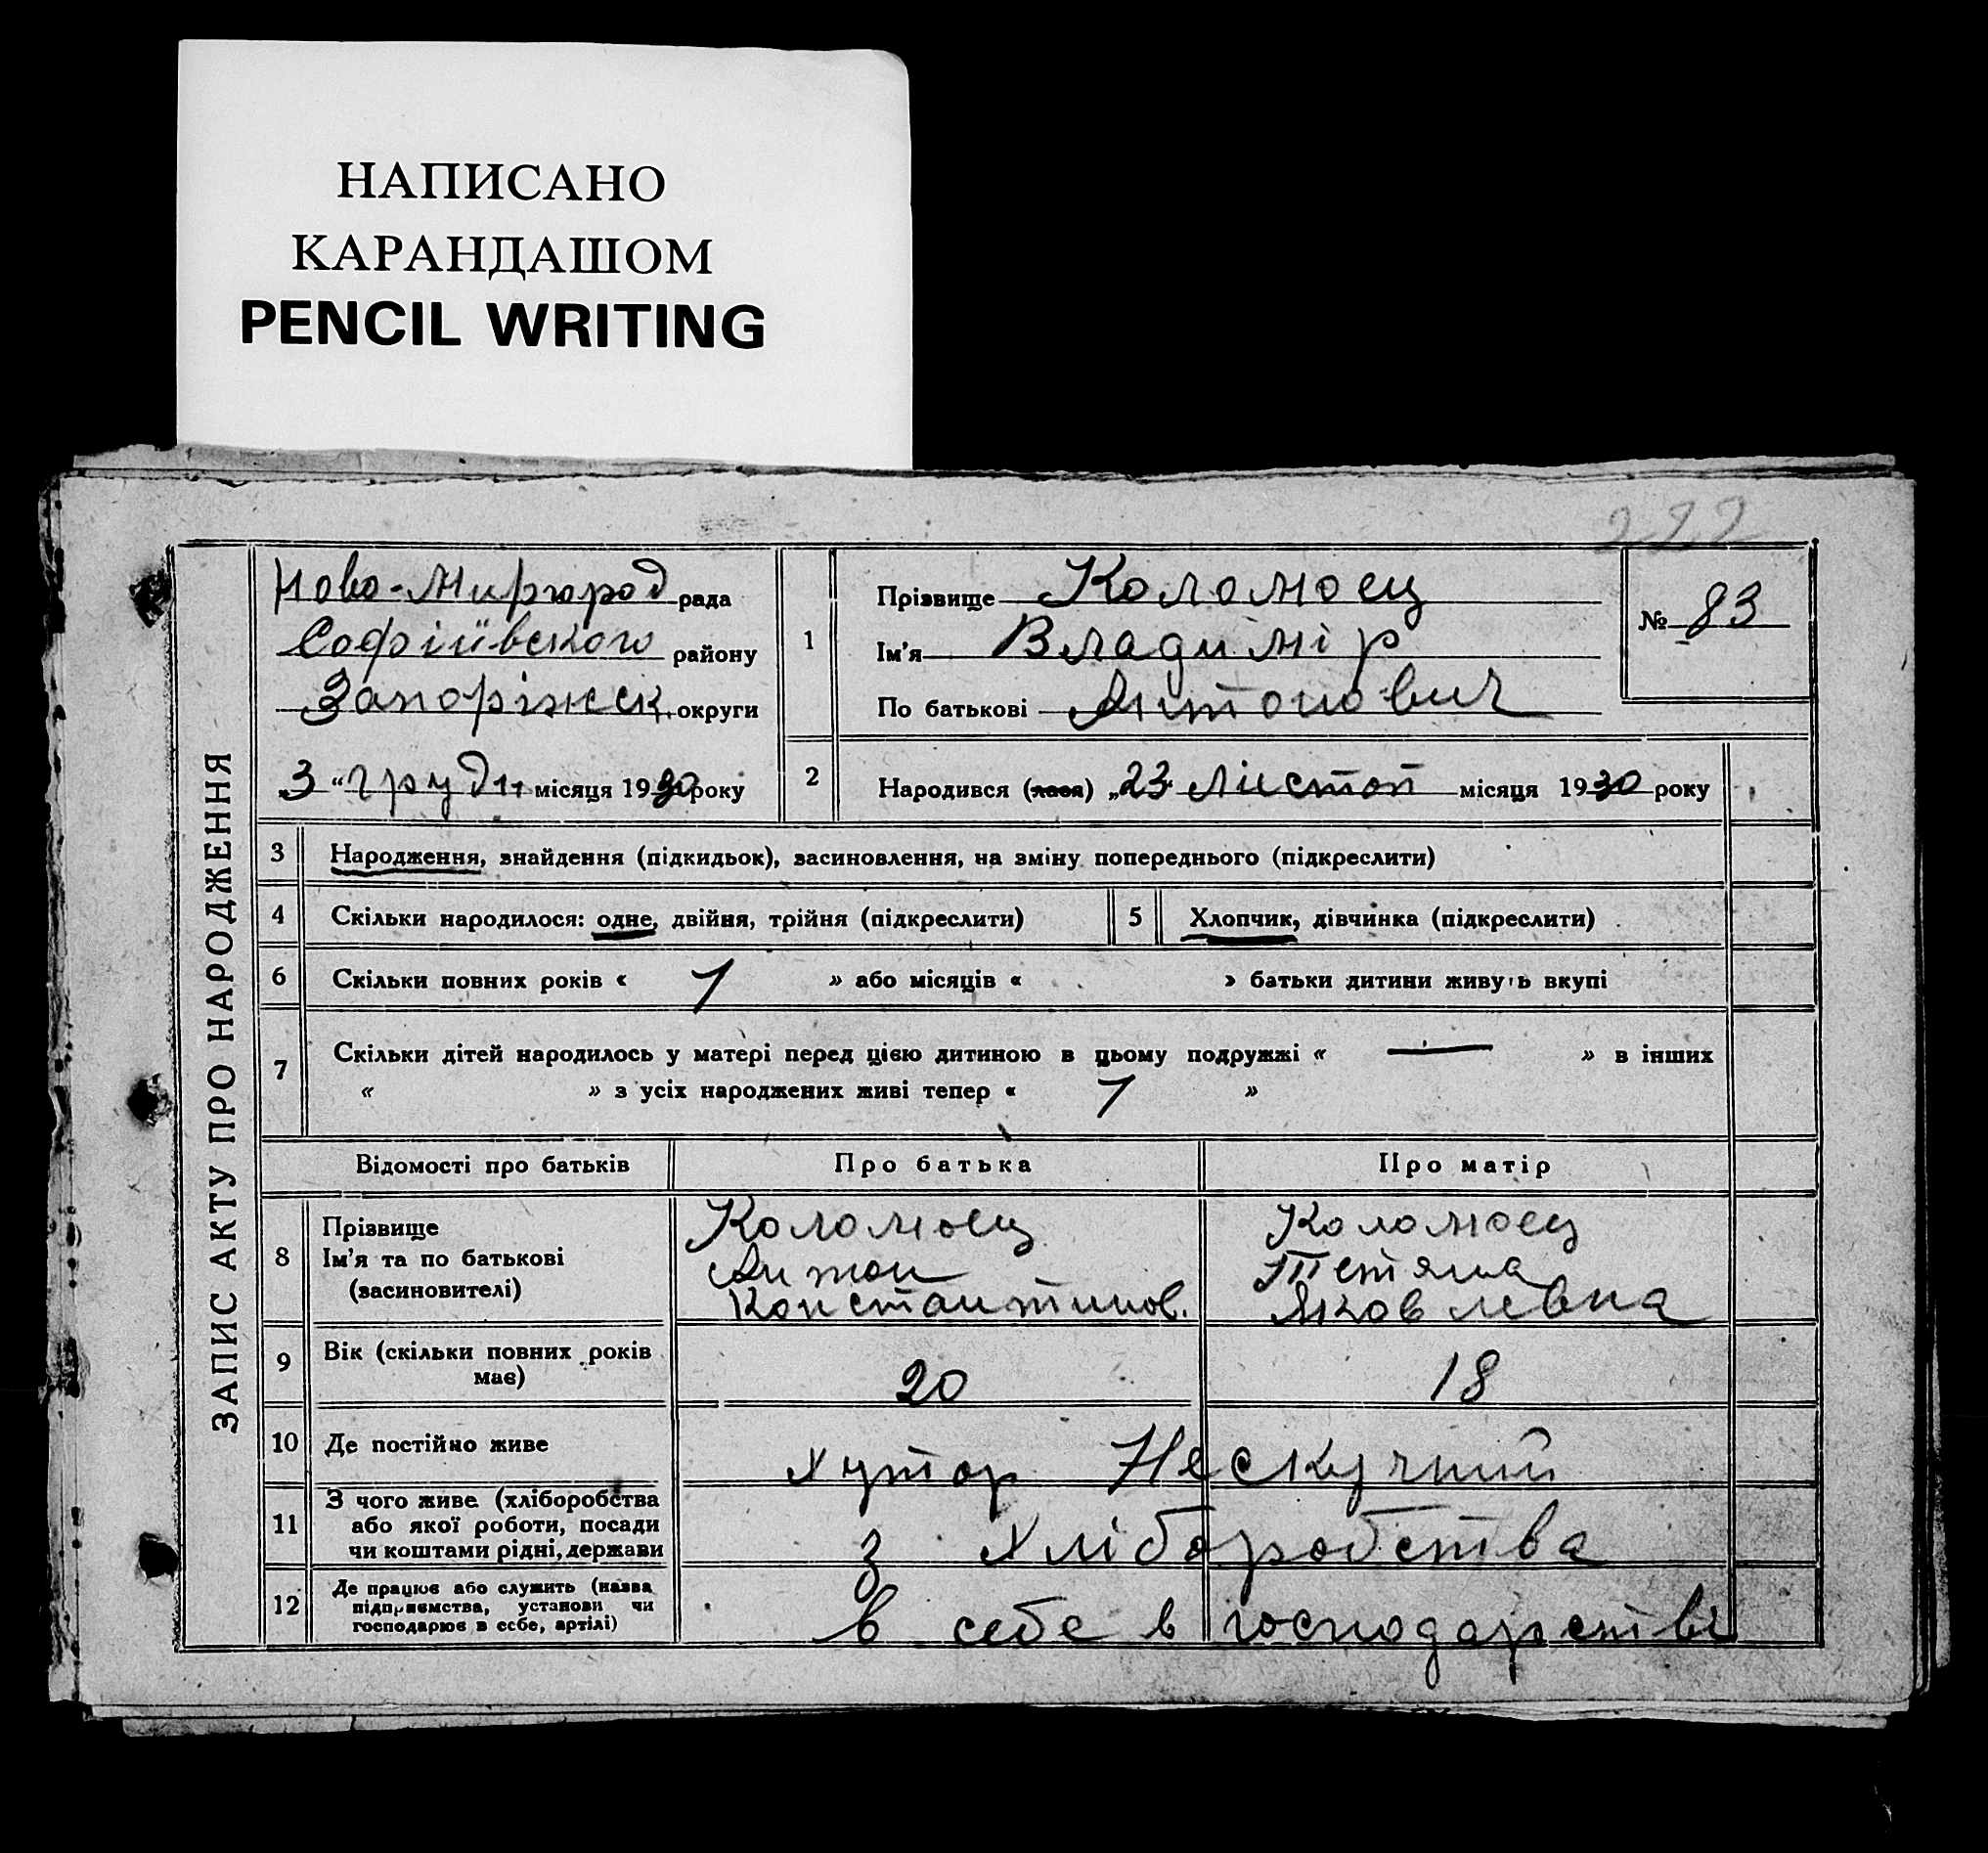 НАПИСАНО
КАРАНДАШОМ
PENCIL WRITING
222
ЗАПИС АКТУ ПРО НАРОДЖЕННЯ
Ново-Миргород рада
Софіївського району
Запоріжск. округи
„3 “ грудн місяця 1930 року
1
Прізвище Коломоец
Ім'я Владимір
По батькові Антонович
№ 83
2
Народився (лася) „23 Листоп місяця 1930 року
3 Народження, знайдення (підкидьок), засиновлення, на зміну попереднього (підкреслити)
4 Скільки народилося: одне, двійня, трійня (підкреслити)
5 Хлопчик, дівчинка (підкреслити)
6 Скільки повних років « 1 » або місяців « » батьки дитини живуть вкупі
7 Скільки дітей народилось у матері перед цією дитиною в цьому подружжі « — » в інших
« » з усіх народжених живі тепер « 1 »
Відомості про батьків Про батька Про матір
8 Прізвище
Ім'я та по батькові
(засиновителі)
Коломоец
Антон
Константинов.
Коломоец
Тетяна
Яковлевна
9 Вік (скільки повних років
має)
20 18
10 Де постійно живе хутор Нескучний
11 З чого живе (хліборобства
або якої роботи, посади
чи коштами рідні, держави
з хліборобства
12 Де працює або служить (назва
підприємства, установи чи
господарює в себе, артілі)
в себе в господарстві